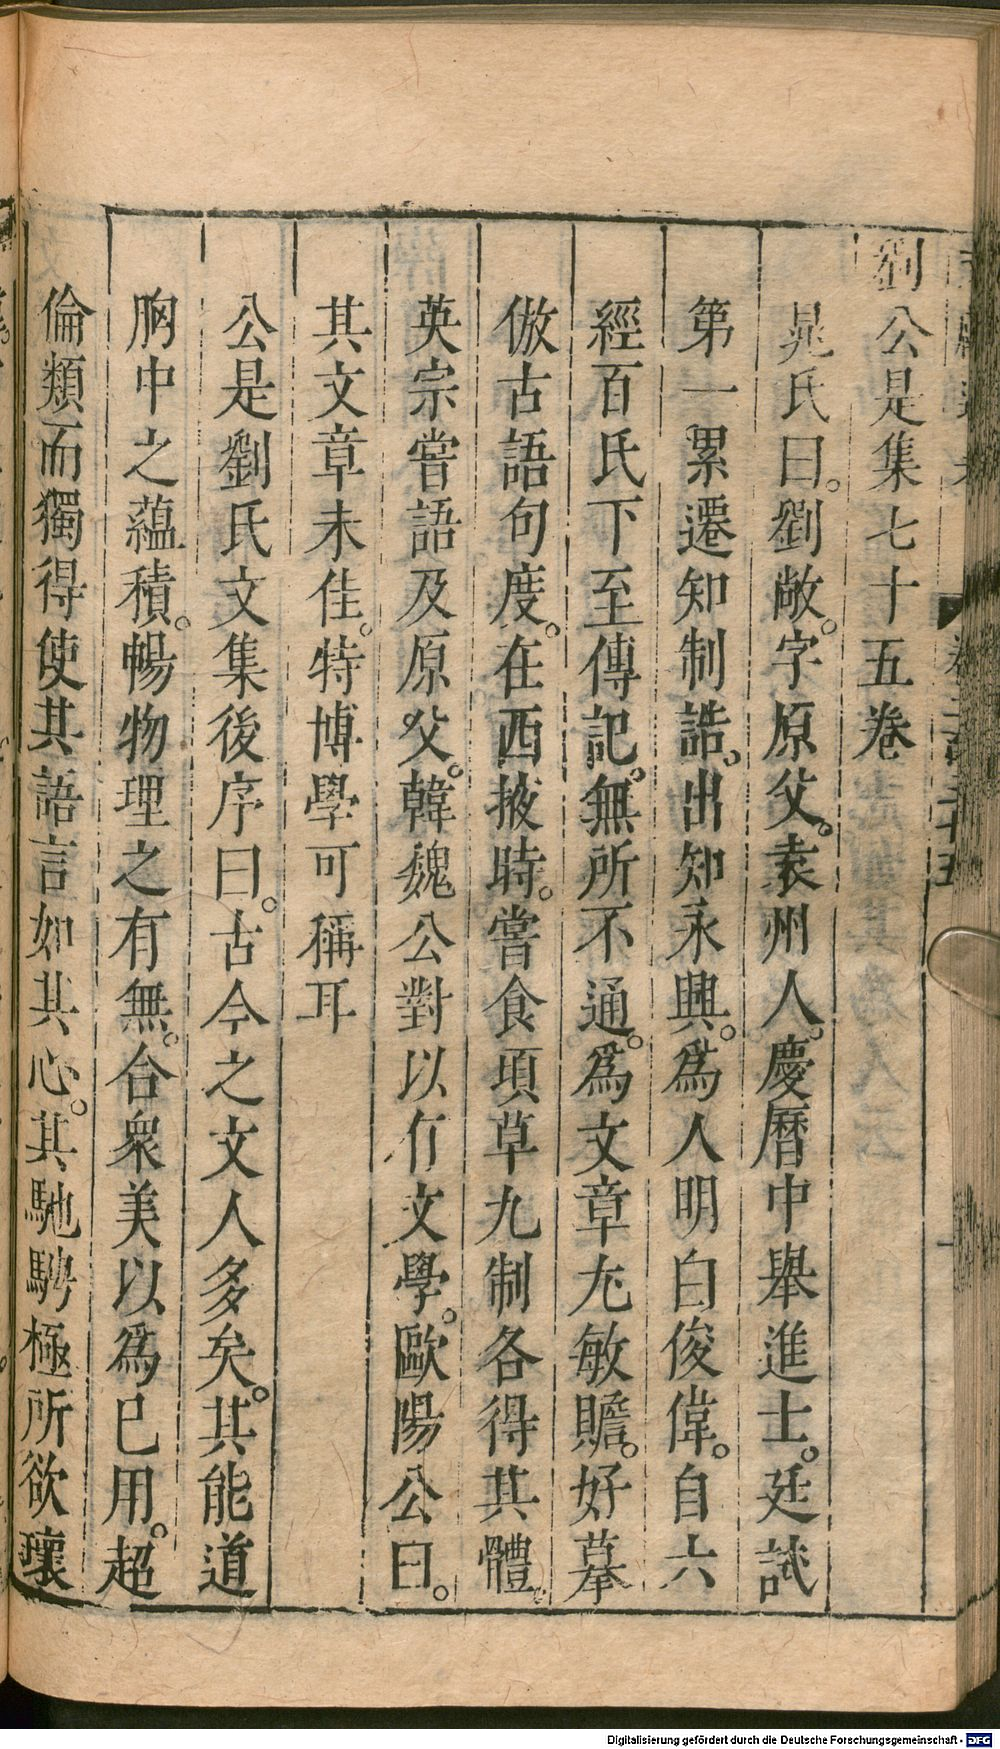 劉公是集七十五卷
晁氏曰。劉敞。字原父。袁州人。慶曆中舉進士。廷試
第一累遷知制誥。出知永興。爲人明白俊偉。自六
經百氏下至傳記。無所不通。爲文章尤敏贍。好摹
倣古語句度。在西掖時。嘗食頃草九制各得其體。
英宗嘗語及原父。韓魏公對以有文學。歐陽公曰。
其文章未佳。特博學可稱耳
公是劉氏文集後序曰。古今之文人多矣。其能道
胸中之蘊積。暢物理之有無。合衆美以爲已用。超
倫類而獨得使其語言如其心。其馳騁極所欲瓌
Digitalisierung gefördert durch die Deutsche Forschungsgemeinschaft - DFG